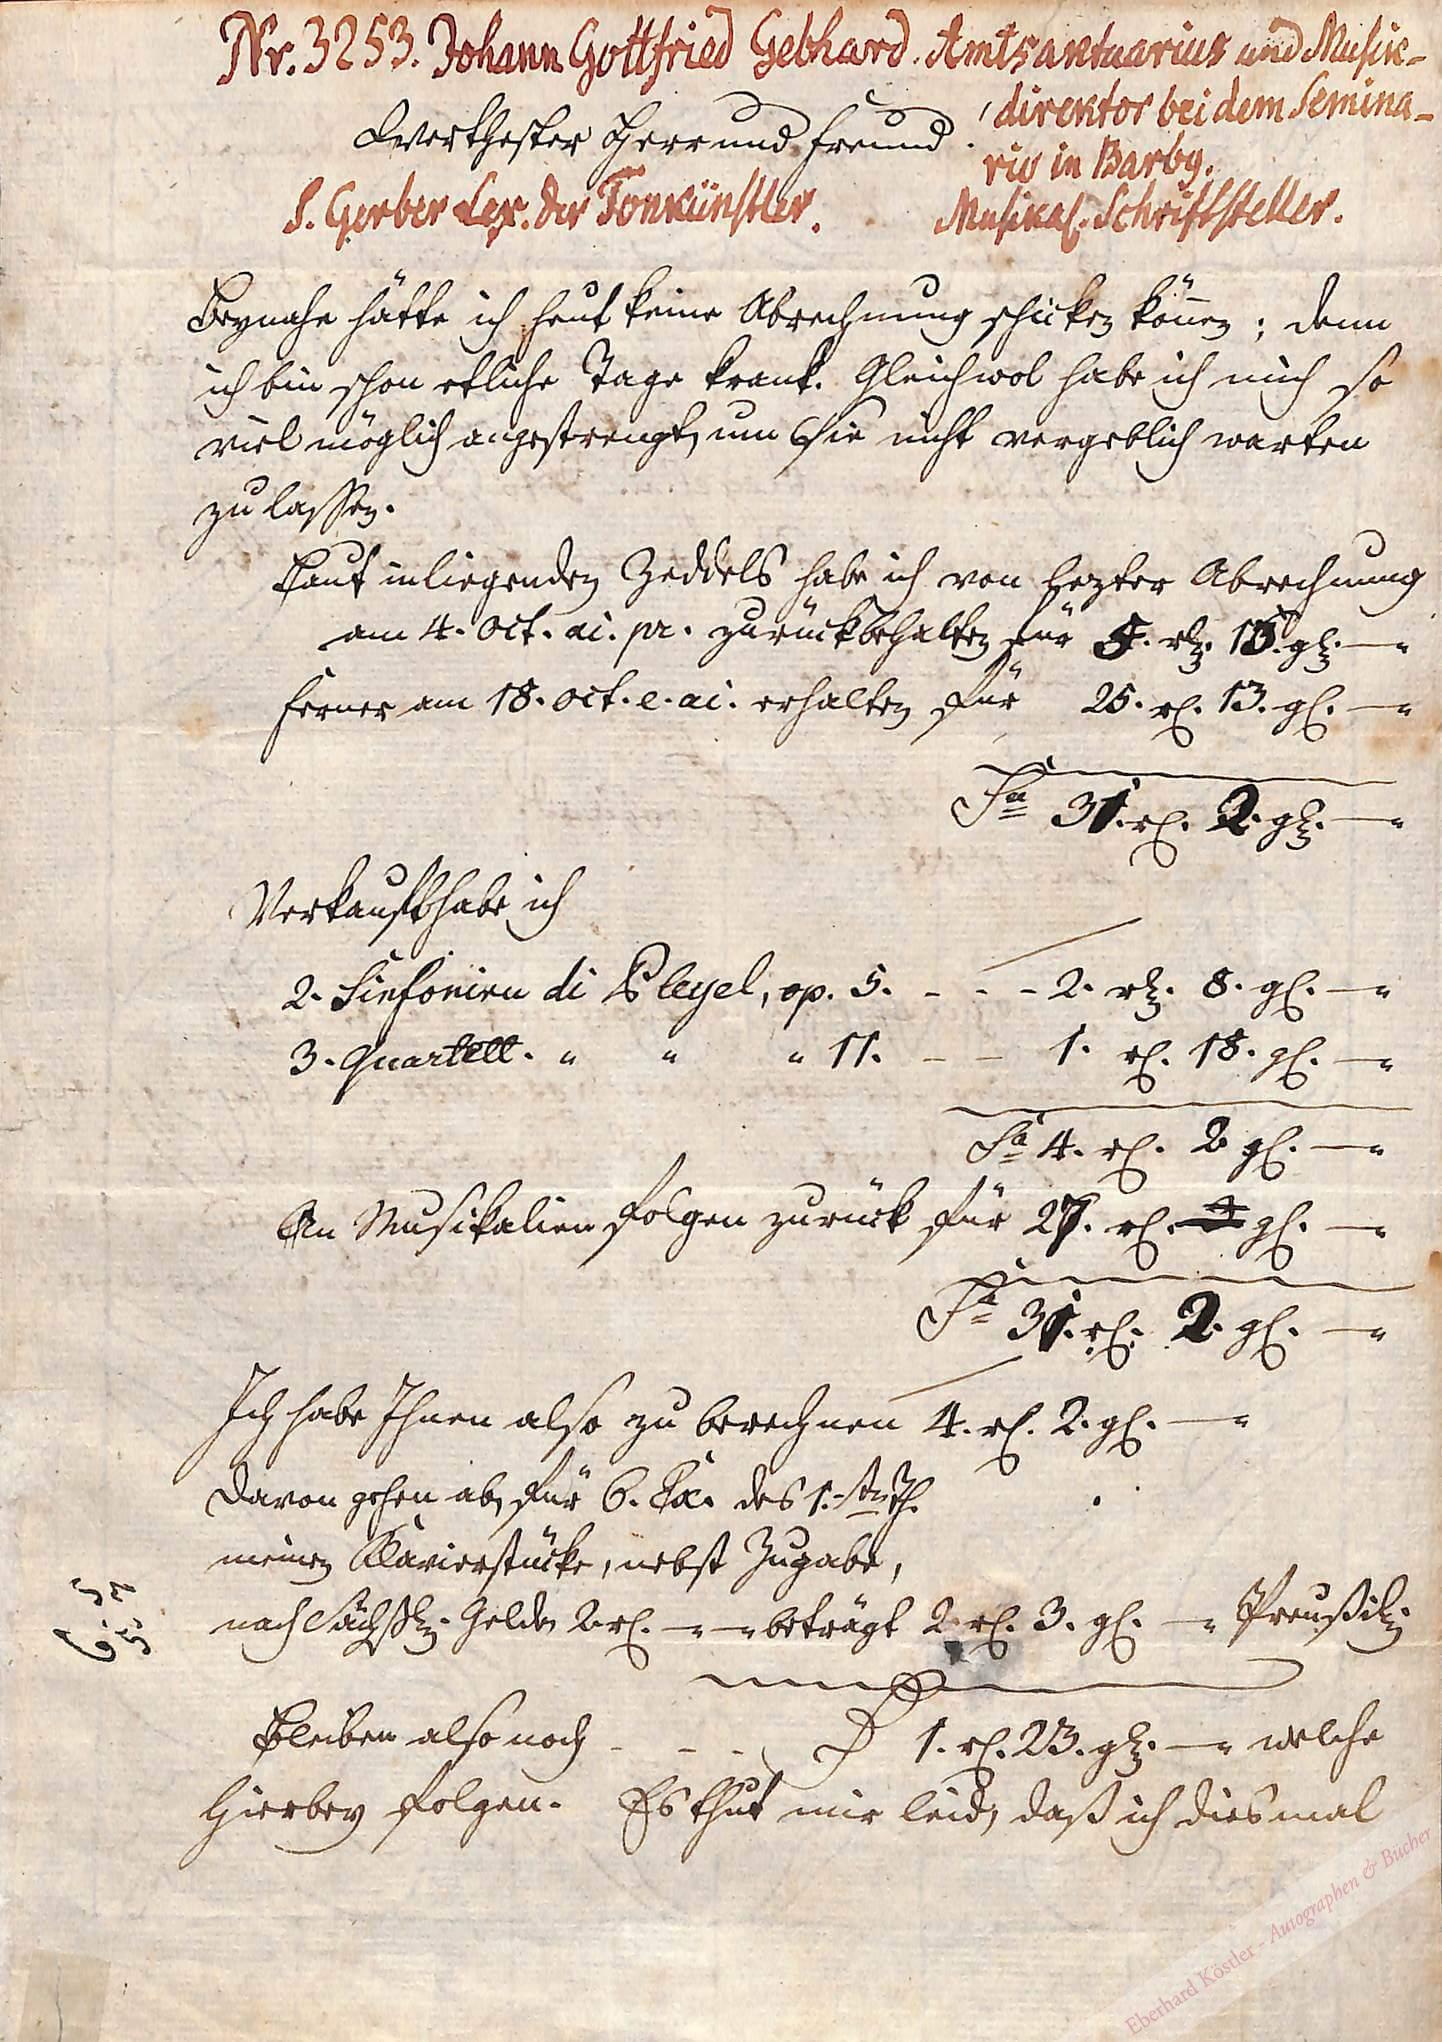 Nr. 3253. Johann Gottfried Gebhard. Amtsaktuarius und Musik-
direktor bei dem Semina-
rio in Barby.
Werthester Herr und Freund.
S. Gerber Lex. der Tonkünstler. Musikal. Schriftsteller.
Beynahe hätte ich heut keine Abrechnung schicken können; denn
ich bin schon etliche Tage krank. Gleichwol habe ich mich so
viel möglich angestrengt, um Sie nicht vergeblich warten
zu lassen.
Laut inliegenden Zeddels habe ich von lezter Abrechnung
am 4. Oct. ai. pr. zurückbehalten für 5. rl. 13. gl. —"
ferner am 18. Oct. e. ai. erhalten für 25. rl. 13. gl. —"
Sa 31. rl. 2. gl. —"
Verkauft habe ich
2. Sinfonien di Pleyel, op. 5. - - - 2. rl. 8. gl. —"
3. Quartett. " " " 11. - - 1. rl. 18. gl. —"
Sa 4. rl. 2 gl. —"
An Musikalien folgen zurück für 27. rl. gl. —"
Sa 31. rl. 2. gl. —"
Ich habe Ihnen also zu berechnen 4. rl. 2. gl. —"
davon gehen ab, für 6. Ex. des 1.sten Th.
meiner Klavierstücke, nebst Zugabe,
nach Sächß. Gelde, 2 rl. —"—" beträgt 2. rl. 3. gl. —" Preußisch.
Bleiben also noch - - - 1. rl. 23. gl. —" welche
hierbey folgen. Es thut mir leid, daß ich diesmal
Eberhard Köstler - Autographen & Bücher